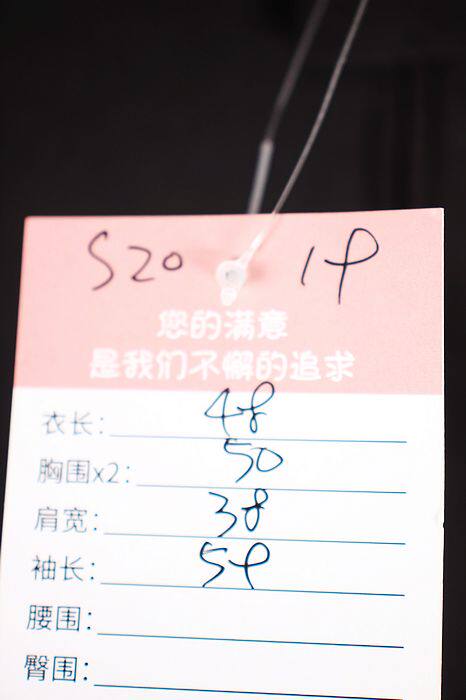 S20 19
您的满意
是我们不懈的追求
衣长: 48
胸围x2: 50
肩宽: 38
袖长: 59
腰围:
臀围: